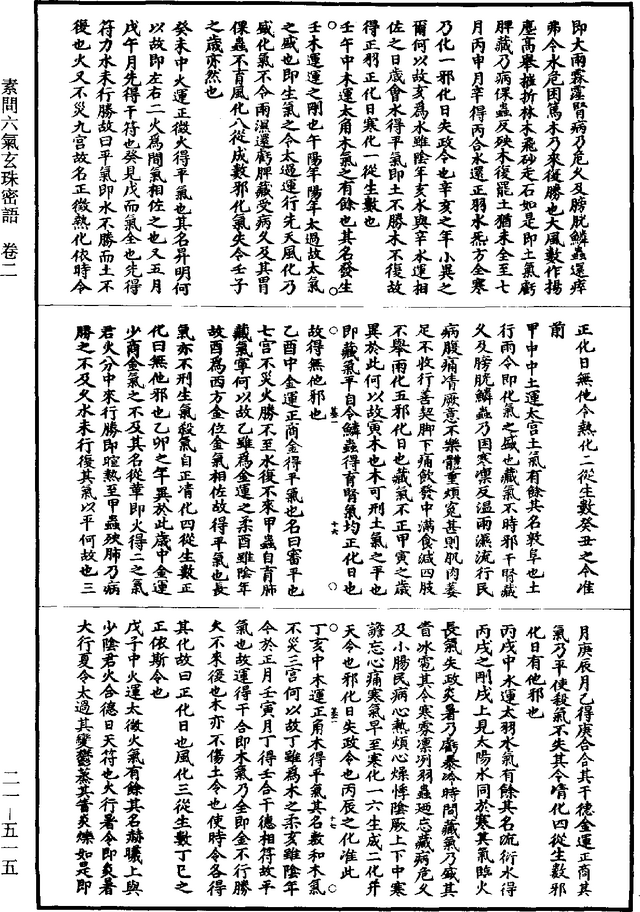 即大雨霖霪腎病乃危久及膀胱鱗蟲還瘁
弗令水危因篤木乃來復勝也大風數作揚
塵高舉摧折林木飛砂走石如是即土氣虧
脾藏乃病倮蟲及殃木復罷土猶未全至七
月丙申月辛得丙合水還正羽水炁方全寒
乃化一邪化日失政令也辛亥之年小異之
爾何以故亥為水雖陰年亥水與辛水運相
佐之日歲會水得平氣即土不勝木不復故
得正羽正化日寒化一從生數也
壬午中木運太角木氣之有餘也其名發生
壬木運運之剛也午陽年陽年太過故太氣
之盛也即生氣之令太過運行先天風化乃
盛化氣不令雨濕還虧脾藏受病久及其胃
倮蟲不育風化八從成數邪化氣失令壬子
之歲亦然也
癸未中火運正徵火得平氣也其名昇明何
以故即左右二火為間氣相佐之也又五月
戊午月先得干符也癸見戊而氣全也先得
符力水未行勝故曰平氣即水不勝而土不
復也火又不災九宮故名正徵熱化依時令
正化日無他令熱化二從生數癸丑之令准
前
甲申中土運太宮土氣有餘其名敦阜也土
行雨令即化氣之盛也藏氣不時邪干腎藏
久及膀胱鱗蟲乃因寒凜反溫雨濕流行民
病腹痛清厥意不樂體重煩冤甚則肌肉萎
足不收行善契脚下痛飲發中滿食減四肢
不舉雨化五邪化日也藏氣不正甲寅之歲
異於此何以故寅木也木可刑土氣之平也
即藏氣平自令鱗蟲得育腎氣均正化日也
故得無他邪也
乙酉中金運正商金得平氣也名曰審平也
七宮不災火勝不至水復不來甲蟲自育肺
藏氣寧何以故乙雖為金運之柔酉雖陰年
故酉為西方金位金氣相佐故得平氣也長
氣亦不刑生氣殺氣自正清化四從生數正
化日無他邪也乙卯之年異於此歲中金運
少商金氣之不及其名從革即火得二之氣
君火分中來行勝即暄熱至甲蟲殃肺乃病
勝之不及火水未行復其氣以平何故也三
月庚辰月乙得庚合合其干德金運正商其
氣乃平使殺氣不失其令清化四從生數邪
化日有他邪也
丙戌中水運太羽水氣有餘其名流衍水得
丙戌之剛戌上見太陽水同於寒其氣臨火
長氣失政炎暑乃虧暴冷時間藏氣乃盛其
眚冰雹其令寒雰凛冽羽蟲廼忘藏病危久
及小腸民病心熱煩心燥悸陰厥上下中寒
譫忘心痛寒氣早至寒化一六生成二化并
天令也邪化日失政令也丙辰之化准此
丁亥中木運正角木得平氣其名敷和木氣
不災三宮何以故丁雖為木之柔亥雖陰年
令於正月壬寅月丁得壬合干德相符故平
氣也故運得干合即木氣乃全即金不行勝
火不來復也木亦不傷土令也使時令各得
其化故曰正化日也風化三從生數丁巳之
正依斯令也
戊子中火運太徵火氣有餘其名赫曦上與
少陰君火合德日天符也火行暑令即炎暑
大行夏令太過其變鬱蒸其眚炎爍如是即
素問六氣玄珠密語 卷二
二一—五一五